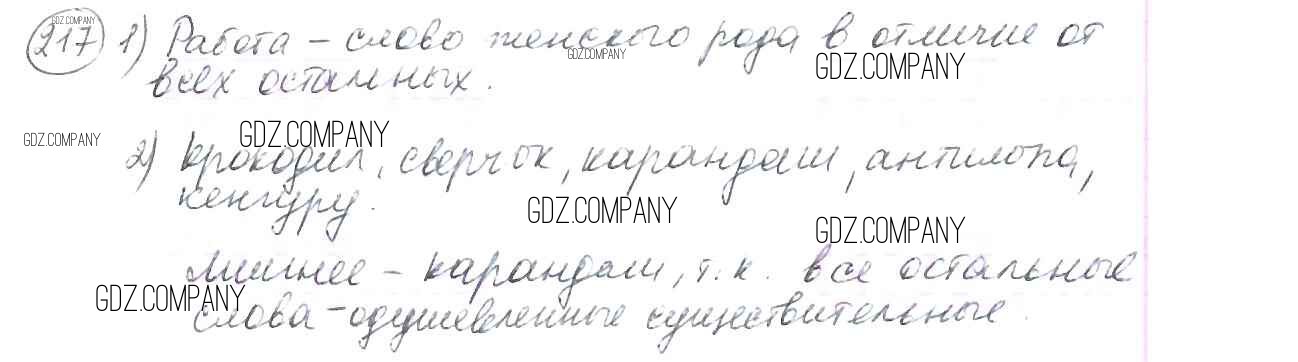 GDZ.COMPANY
217 1) Работа – слово женского рода в отличие от
GDZ.COMPANY
GDZ.COMPANY
всех остальных.
GDZ.COMPANY
GDZ.COMPANY
2) Крокодил, сверчок, карандаш, антилопа,
кенгуру.
GDZ.COMPANY
GDZ.COMPANY
Лишнее – карандаш, т.к. все остальные
GDZ.COMPANY
слова – одушевленные существительные.